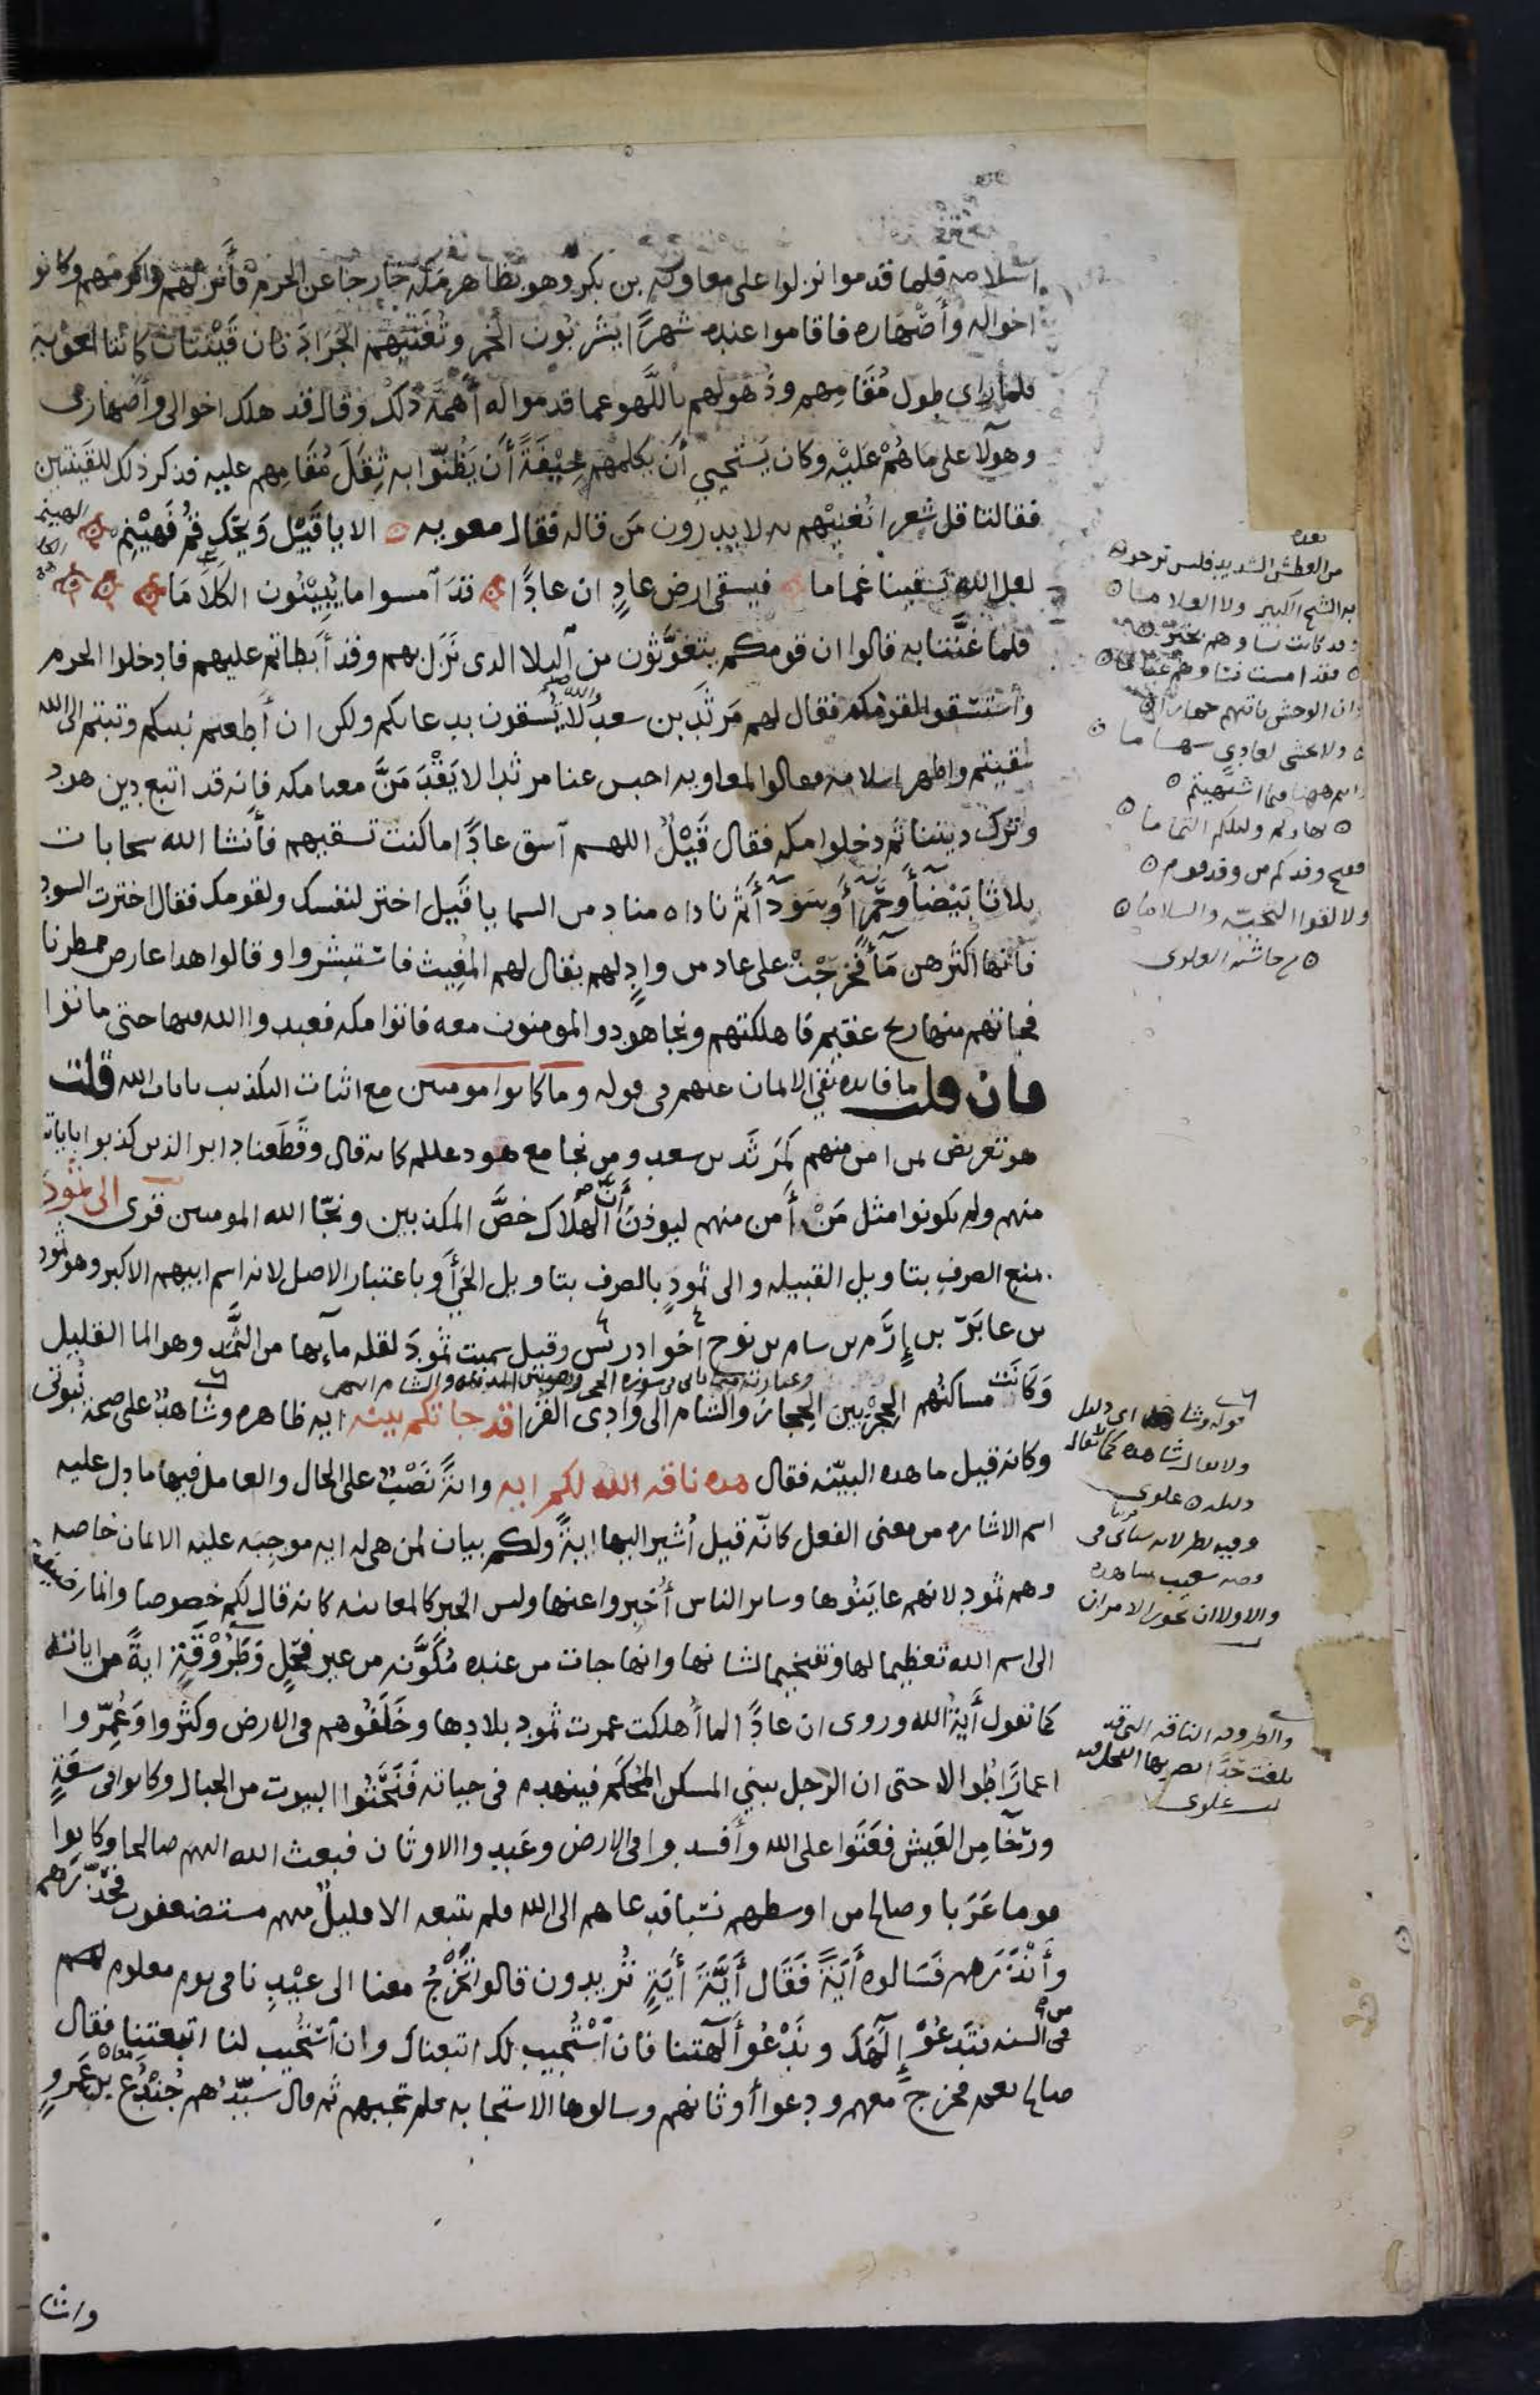 اسلامه فلما قدموا نزلوا على معاويه بن بكر وهو بظاهر مكه خارجا عن الحرم فأنزلهم واكرمهم وكانوا
اخواله وأصْهاره فاقاموا عنده شهرًا يشربُون الخمر وتُغَنّيْهم الجَرَادَتان قَيْنتان كانتا لمعويه
فلما راى طول مُقَامِهم وذُهولهم باللَّهو عما قدموا له أهَمَّه ذلك وقال قد هلك اخوالى وأصْهارى
وهولآ على مَا هُمْ عَليْه وكان يَسْتحيِي أن يكلمهم خِيْفَةً أَن يَظُنّوا به ثِقَلَ مُقَامِهم عليه فذكر ذلك للقَينتين
فقالتا قل شعرا نُغنيْهم به لا يدرون مَن قاله فقال معويه الا يا قَيْل وَيْحَكَ قُمْ فَهيْنِم
لعل الله يَسقينا غماما فيسقى ارض عادٍ ان عادًا قدَ آمسوا ما يُبِيْنُون الكَلاَمَا
فلما غنَّتنا به قالوا ان قومكم يتغوَّثون من البلا الدى نَزَل بهم وقد أبطاتم عليهم فادخلوا الحرم
وأستسْقوا لقومكم فقال لهم مَرثَد بن سعد والله لا يُسقون بدعايكم ولكن ان أطعتم نبيكم وتبتم الى الله
سُقيتم واظهر اسلامه فقالوا لمعاويه احبس عنا مرثدا لا يَقْدَ مَنَّ معنا مكه فانه قد اتبع دين هود
وترك ديننا ثم دخلوا مكه فقال قَيْلٌ اللهم آسق عادًا ما كنت تسقيهم فأنشا الله سحابات
ثلاثا بَيْضآ وحَمْرآ وسَوْدَآ ثم ناداه مناد من السما يا قَيل اختر لنفسك ولقومك فقال اخترت السودا
فانها اكثرهن مَآ فخرجَتْ على عاد من وادٍ لهم يقال لهم المُغِيث فاستبشروا وقالوا هدا عارض ممطرنا
فجاتهم منها ريح عقيم فاهلكتهم ونجا هود والمومنون معه فاتوا مكه فعبدوا الله فيها حتى ماتوا
فان قلت ما فايده نفى الايمان عنهم فى قوله وما كانوا مومنين مع اثبات التكذيب بايات الله قلت
هو تعريض لمن امن منهم كمَرثَد بن سعد ومن نجا مع هود عليلم كانه قال وقَطَعنا دابر الذين كذبوا باياتنا
منهم ولم يكونوا مثل مَنْ أمن منهم ليوذن أنّ الهَلاك خصَّ المكذبين ونجّا الله المومنين قرى الى ثمودَ
بمنع الصرف بتاويل القبيله والى ثمودٍ بالصرف بتاويل الحَيّ أو باعتبار الاصل لانه اسم ابيهم الاكبر وهو ثمود
بن عابَر بن إرَم بن سام بن نوح وقيل سميت ثمودَ لقله مآيها من الثَّمَد وهو الما القليل
وَكانَت مساكنُهم الحِجْر بين الحِجاز والشام الى وَادِى القُرَا قد جاتكم بينه ايه ظاهره وشاهدٌ على صحة نُبوتى
وكانه قيل ما هده البيّنه فقال هده ناقه الله لكم ايه وايةً نَصْبٌ على الحال والعامل فيها ما دل عليه
اسم الاشاره من معنى الفعل كانّه قيل أشير اليها ايةً ولكم بيان لمن هى له ايه موجِبَه عليه الايمان خاصه
وهم ثمود لانهم عايَنُوها وساير الناس أُخبروا عنها وليس الخبر كالمعاينه كانه قال لكم خصوصا وانما اضيفت
الى اسم الله تعظيما لها وتفخيما لشانها وانها جات من عنده مُكوَّنه من غير فَحْلٍ وَطَرُوْقَةٍ ايةً من اياته
كما تقول أيةُ الله وروى ان عادًا لما أُهلكت عمرت ثمود بلادها وخَلَفُوهم فى الارض وكثروا وَعُمِّروا
اعمارًا طُوالا حتى ان الرَّجل يبني المسكن المُحكَم فينهدم فى حياته فَنَحَتُوا البيوت من الجبال وكانوا فى سَعَةٍ
ورَخَآ مِن العَيش فعَتَوا على الله وأفسدوا فى الارض وعَبدوا الاوثان فبعث الله اليهم صالحا وكانوا
قوما عَرَبا وصالح من اوسطهم نسَبا فدعاهم الى الله فلم يتبعه الا قليلٌ منهم مستضعفون فحذَّرَهم
وأَنْذَرَهم فسَالوه أَيَةً فَقَال أَيَّةَ أَيَةٍ تُريدون قالوا تَخْرُجُ معنا الى عيْدِنا فى يوم معلوم لهم
من السنه فتَدعُوْ إِلَهَكَ ونَدْعُوْ أَلهتنا فان آسْتُجيب لك اتبعناك وان آسْتُجيب لنا اتبعتنا فقال
صالح نعم فخرج معهم ودعوا أوثانهم وسالوها الاستجابه فلم تجبهم ثم قال سَيّدُهم جُنْدُع بن عَمرو
من العطش الشديد فليس نرجو
به الشيخ الكبير ولا الغلاما
وقد كانت نساوهم بخير
فقد امست نساوهم عيامى
وان الوحش ياتيهم جهارا
ولا يخشى لعادي سهاما
وانتم ههنا فيما اشتهيتم
نهاركم وليلكم التماما
فقبح وفدكم من وفد قوم
ولا لقوا التحيّه والسلاما
من حاشيه العلوى
قوله وشاهد اى دليل
ولا يقال شاهده كما يقال
دليله علوى
وفيه نظر لانه سياتى فى
قصه شعيب شاهده
والاولى ان يجوز الامران
والطروقه الناقه التى قد
بلغت حَدًّا يضربها الفحل فيه
علوى
وانت